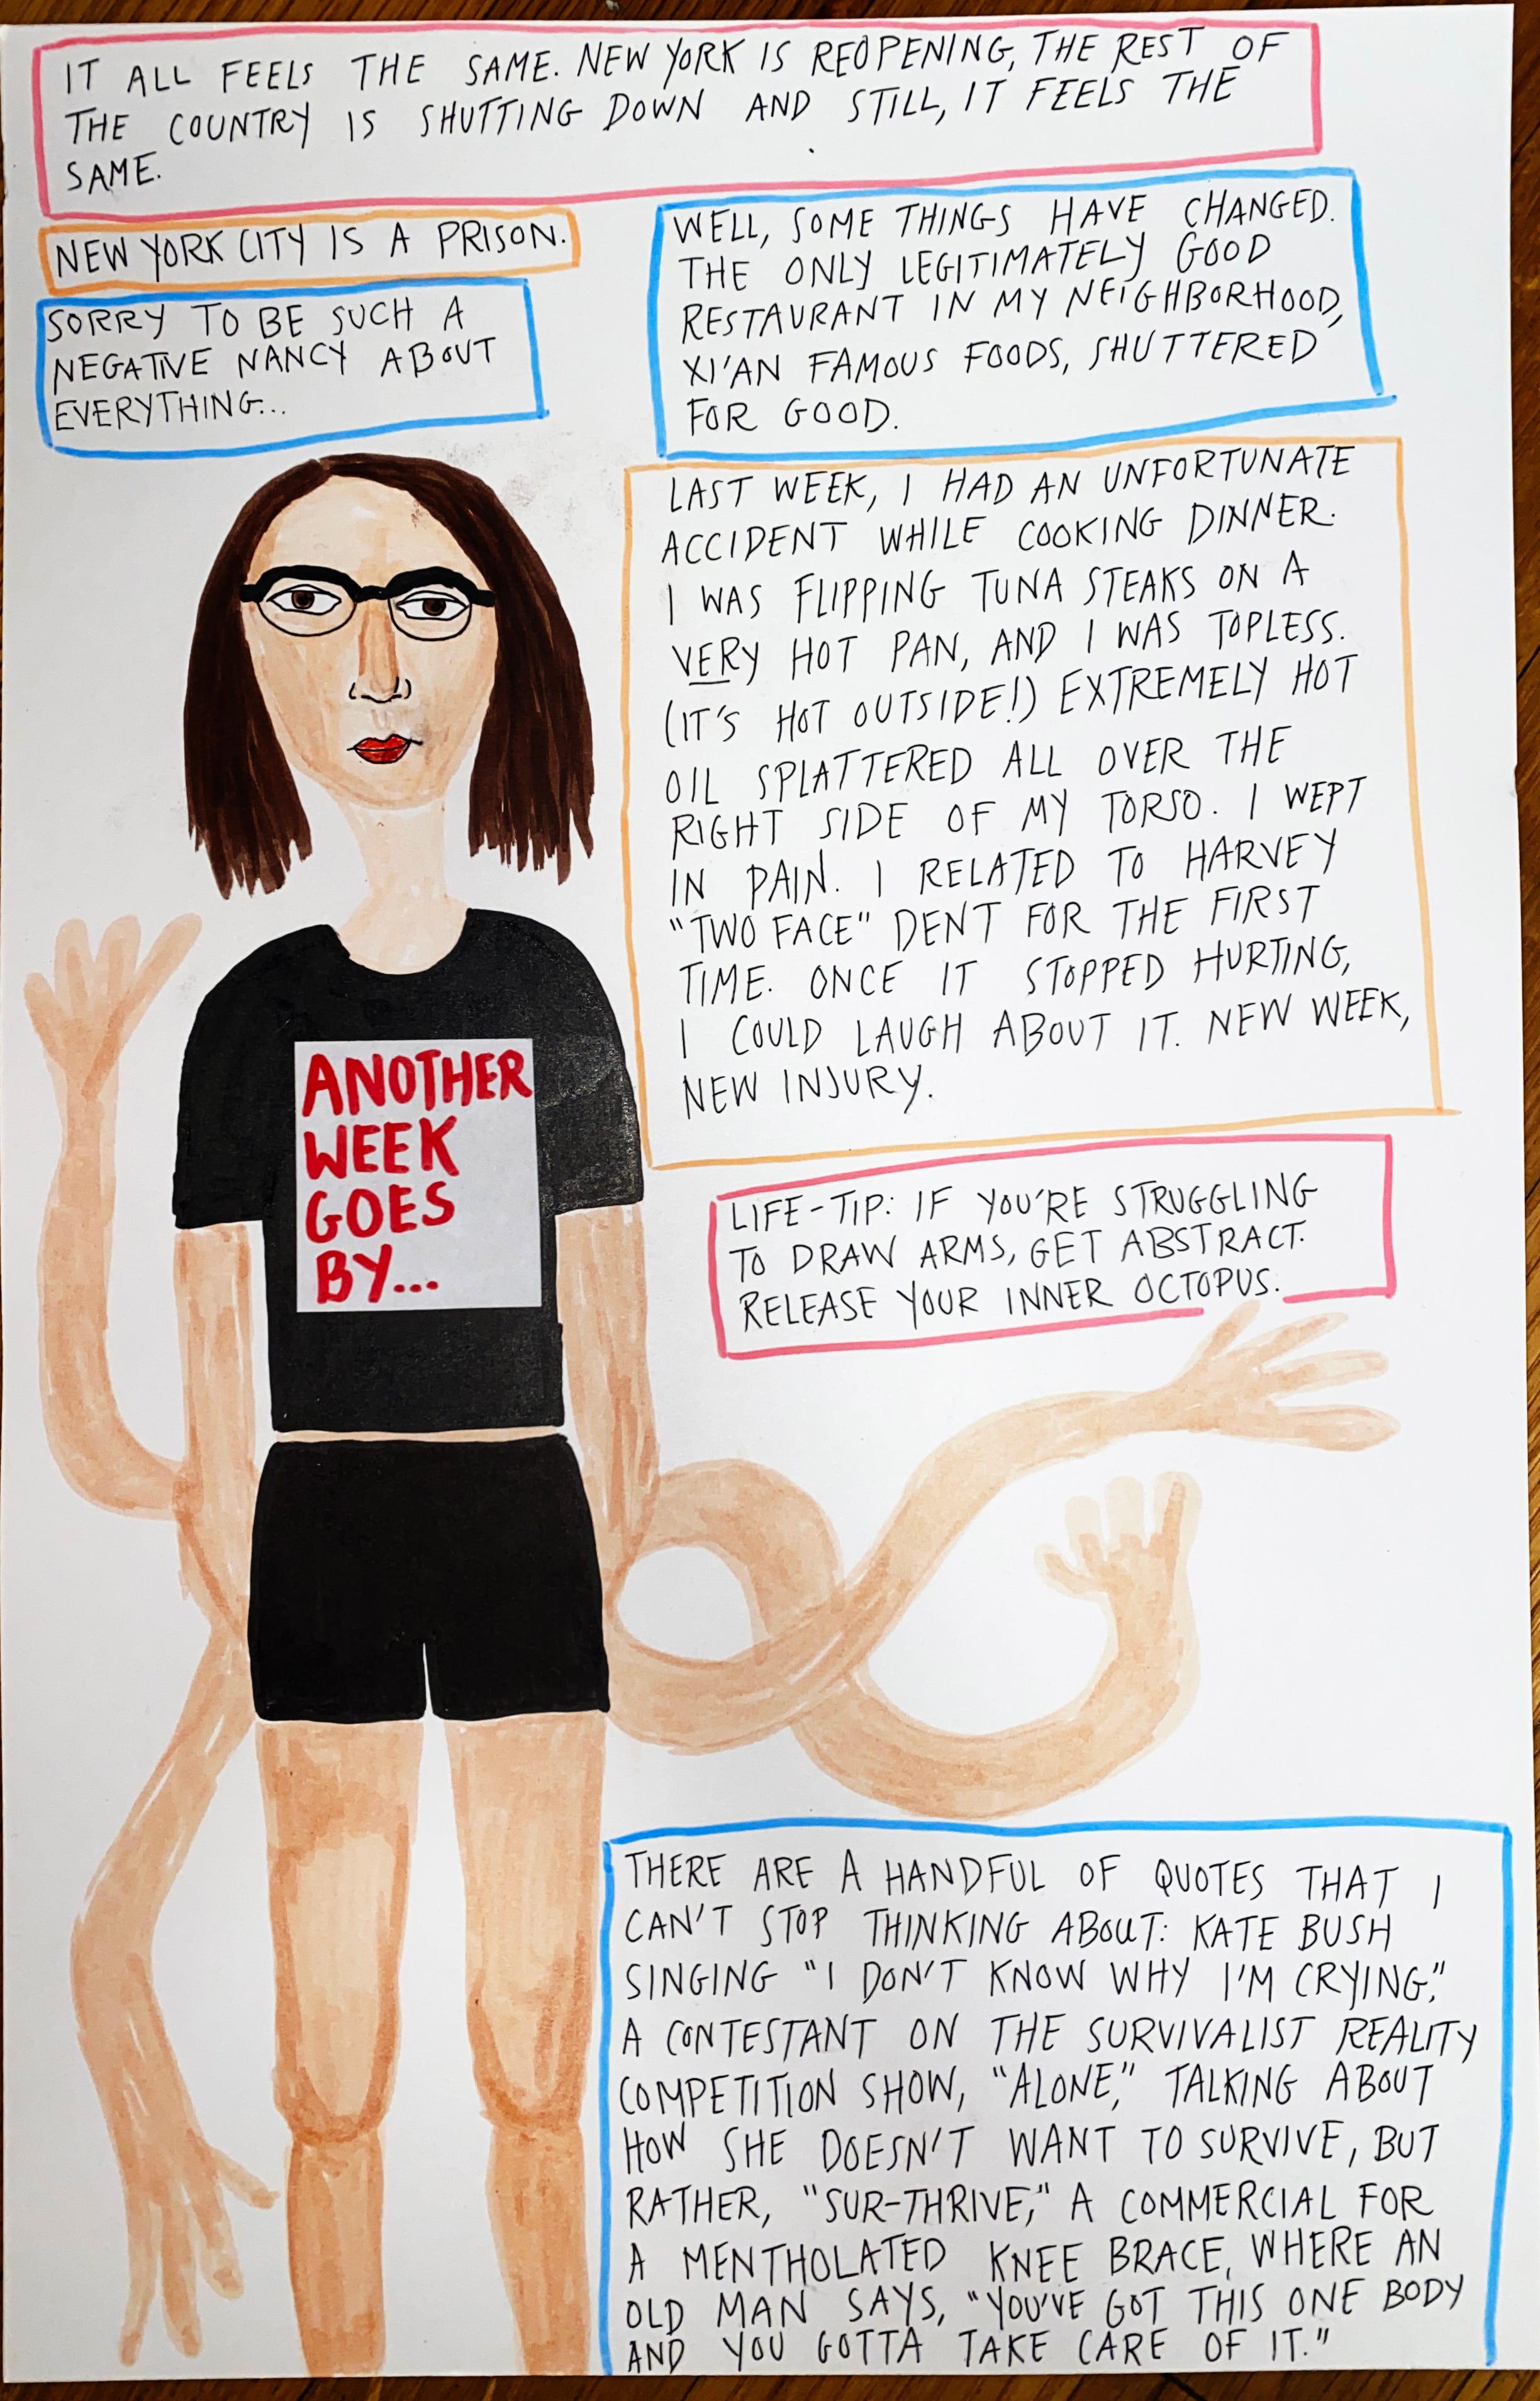 IT ALL FEELS THE SAME. NEW YORK IS REOPENING, THE REST OF
THE COUNTRY IS SHUTTING DOWN AND STILL, IT FEELS THE
SAME.
NEW YORK CITY IS A PRISON.
SORRY TO BE SUCH A
NEGATIVE NANCY ABOUT
EVERYTHING...
WELL, SOME THINGS HAVE CHANGED.
THE ONLY LEGITIMATELY GOOD
RESTAURANT IN MY NEIGHBORHOOD,
XI'AN FAMOUS FOODS, SHUTTERED
FOR GOOD.
LAST WEEK, I HAD AN UNFORTUNATE
ACCIDENT WHILE COOKING DINNER.
I WAS FLIPPING TUNA STEAKS ON A
VERY HOT PAN, AND I WAS TOPLESS.
(IT'S HOT OUTSIDE!) EXTREMELY HOT
OIL SPLATTERED ALL OVER THE
RIGHT SIDE OF MY TORSO. I WEPT
IN PAIN. I RELATED TO HARVEY
"TWO FACE" DENT FOR THE FIRST
TIME. ONCE IT STOPPED HURTING,
I COULD LAUGH ABOUT IT. NEW WEEK,
NEW INJURY.
ANOTHER
WEEK
GOES
BY...
LIFE-TIP: IF YOU'RE STRUGGLING
TO DRAW ARMS, GET ABSTRACT.
RELEASE YOUR INNER OCTOPUS.
THERE ARE A HANDFUL OF QUOTES THAT I
CAN'T STOP THINKING ABOUT: KATE BUSH
SINGING "I DON'T KNOW WHY I'M CRYING,"
A CONTESTANT ON THE SURVIVALIST REALITY
COMPETITION SHOW, "ALONE," TALKING ABOUT
HOW SHE DOESN'T WANT TO SURVIVE, BUT
RATHER, "SUR-THRIVE," A COMMERCIAL FOR
A MENTHOLATED KNEE BRACE, WHERE AN
OLD MAN SAYS, "YOU'VE GOT THIS ONE BODY
AND YOU GOTTA TAKE CARE OF IT."